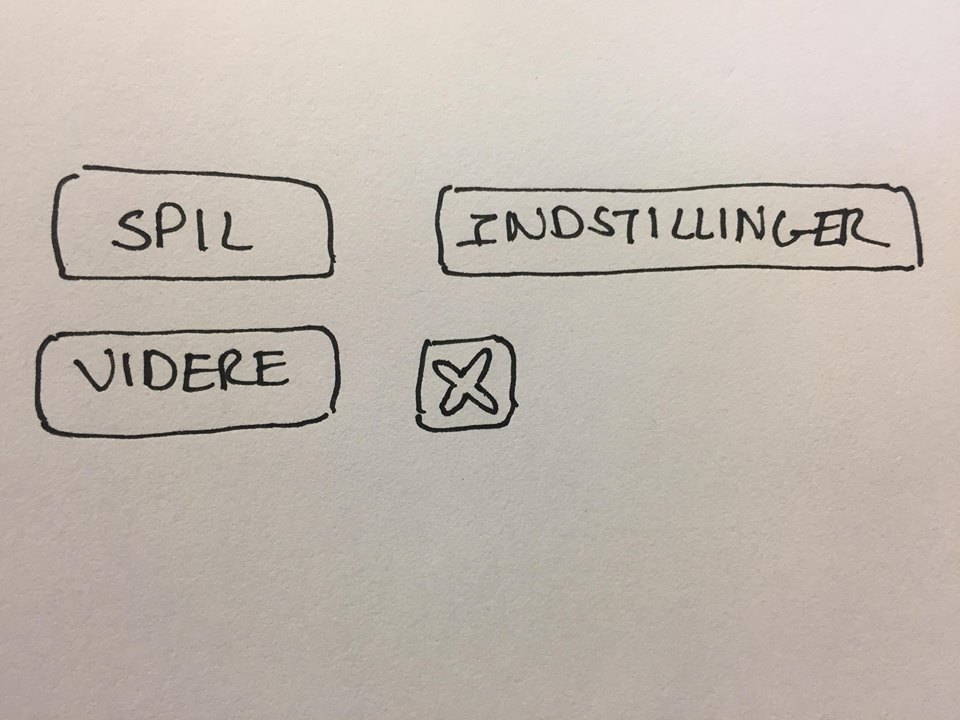 SPIL INDSTILLINGER
VIDERE X